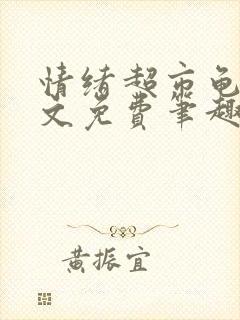 情绪超市龟
文免费笔趣
黄振宜